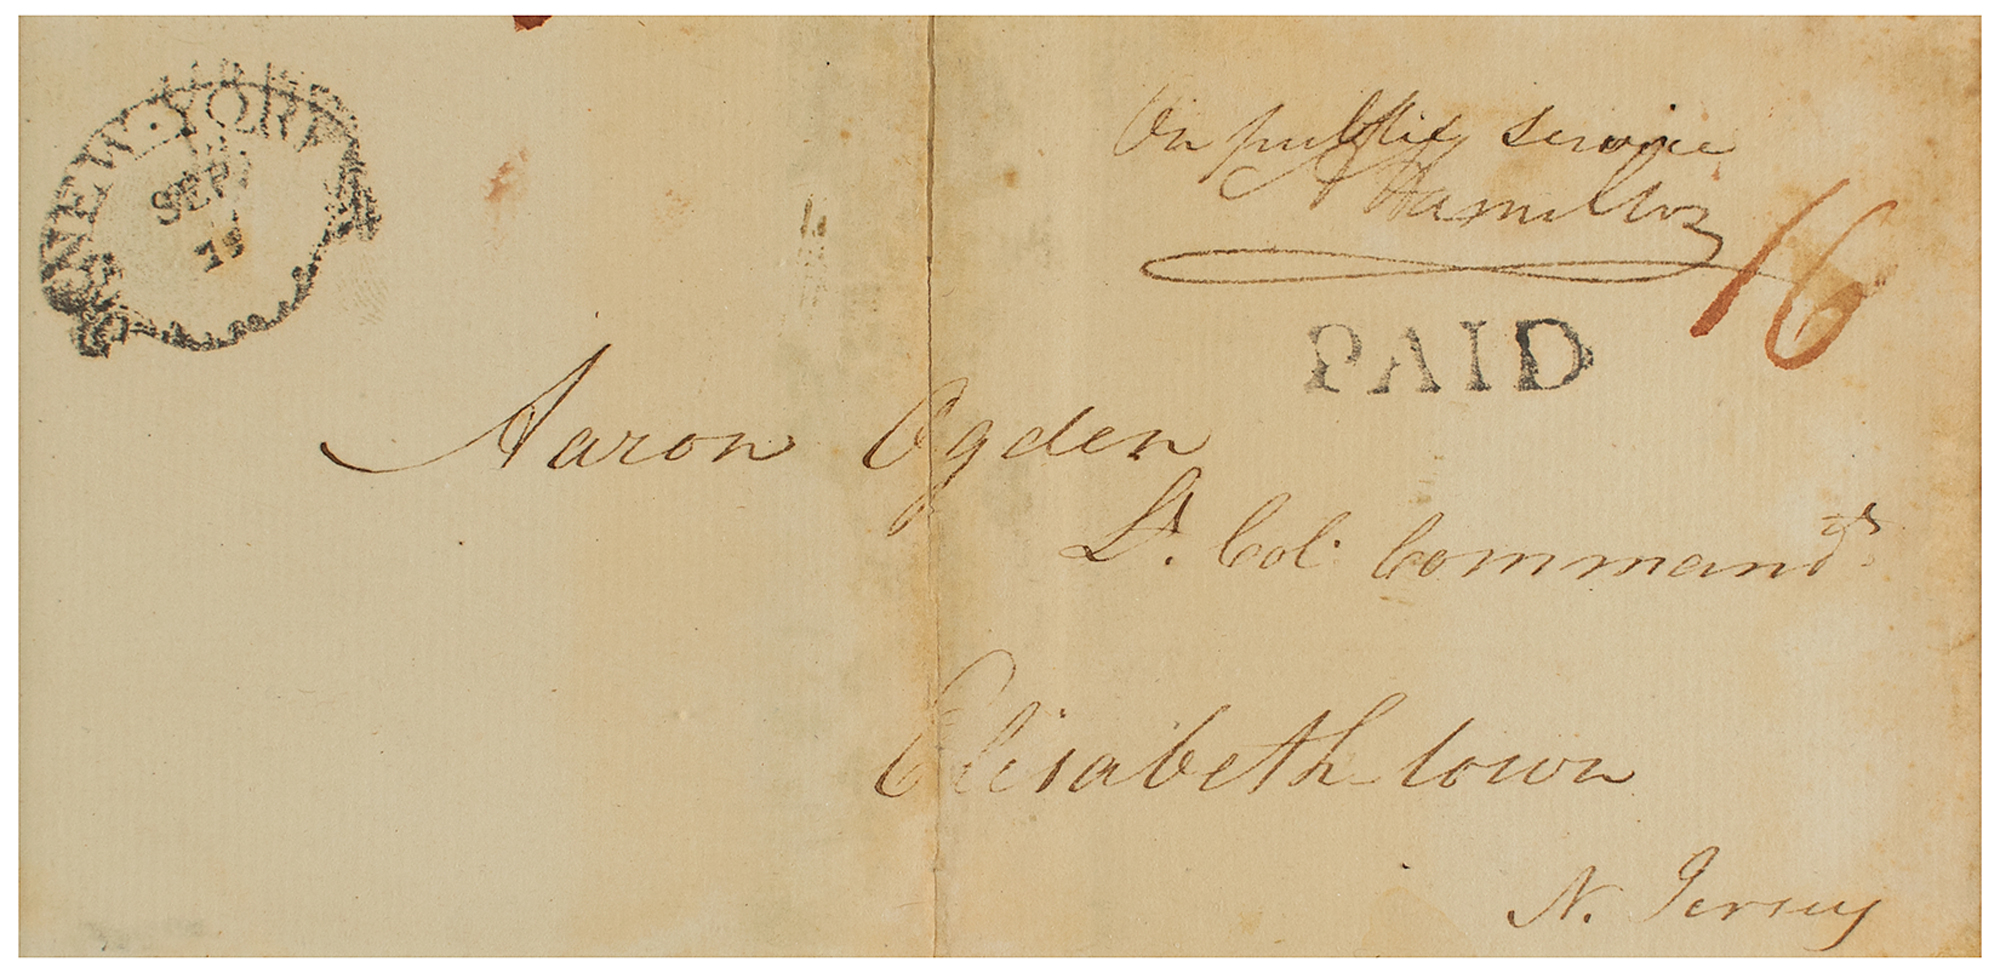 NEW·YORK
SEP
On public service
A Hamilton
16
PAID
Aaron Ogden
Lt. Col. Commandt
Elisabeth-town
N. Jersey